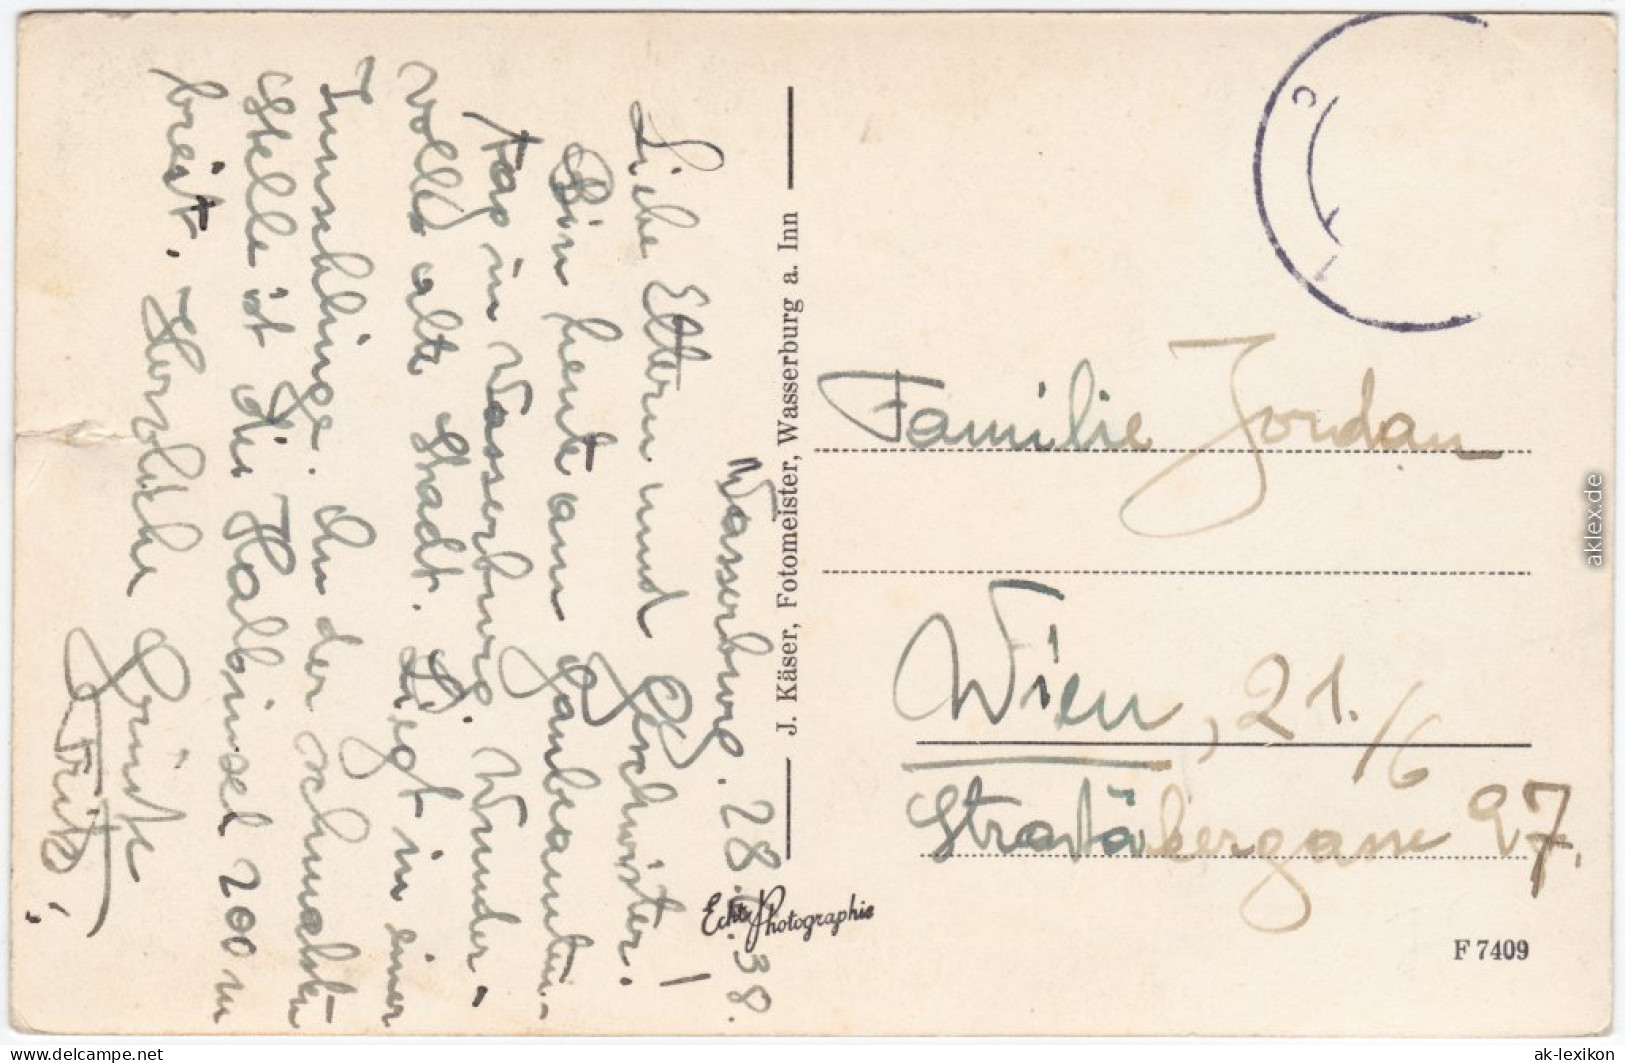 Wasserburg. 28.6.38.
Liebe Eltern und Geschwister!
Bin heute am Gaubeamten-
tag in Wasserburg. Wunder-
volle alte Stadt. Liegt in einer
Innschlinge. An der schmalsten
Stelle ist die Halbinsel 200 m
breit. Herzliche Grüße
Fritz.
J. Käser, Fotomeister, Wasserburg a. Inn
Echte Photographie
Familie Jordan
Wien, 21./6
27.
F 7409
aklex.de
www.delcampe.net
ak-lexikon